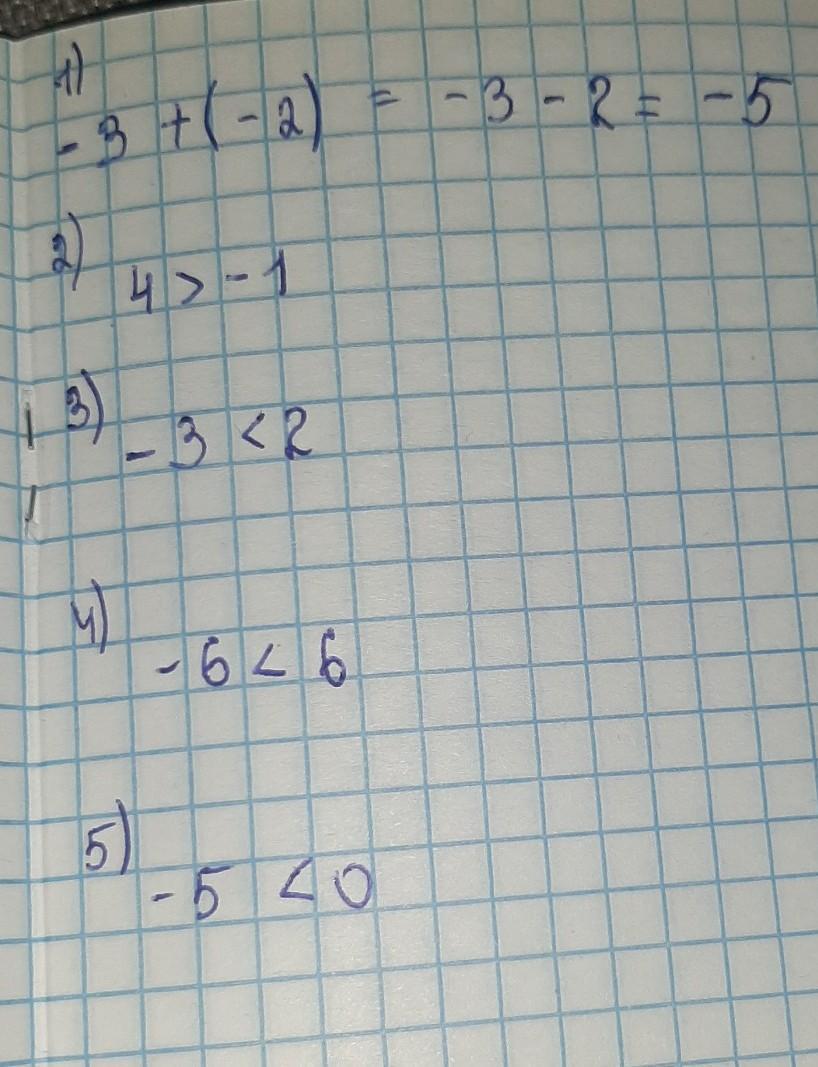 1)
-3 + (-2) = -3 - 2 = -5
2)
4 > -1
3)
-3 < 2
4)
-6 < 6
5)
-5 < 0